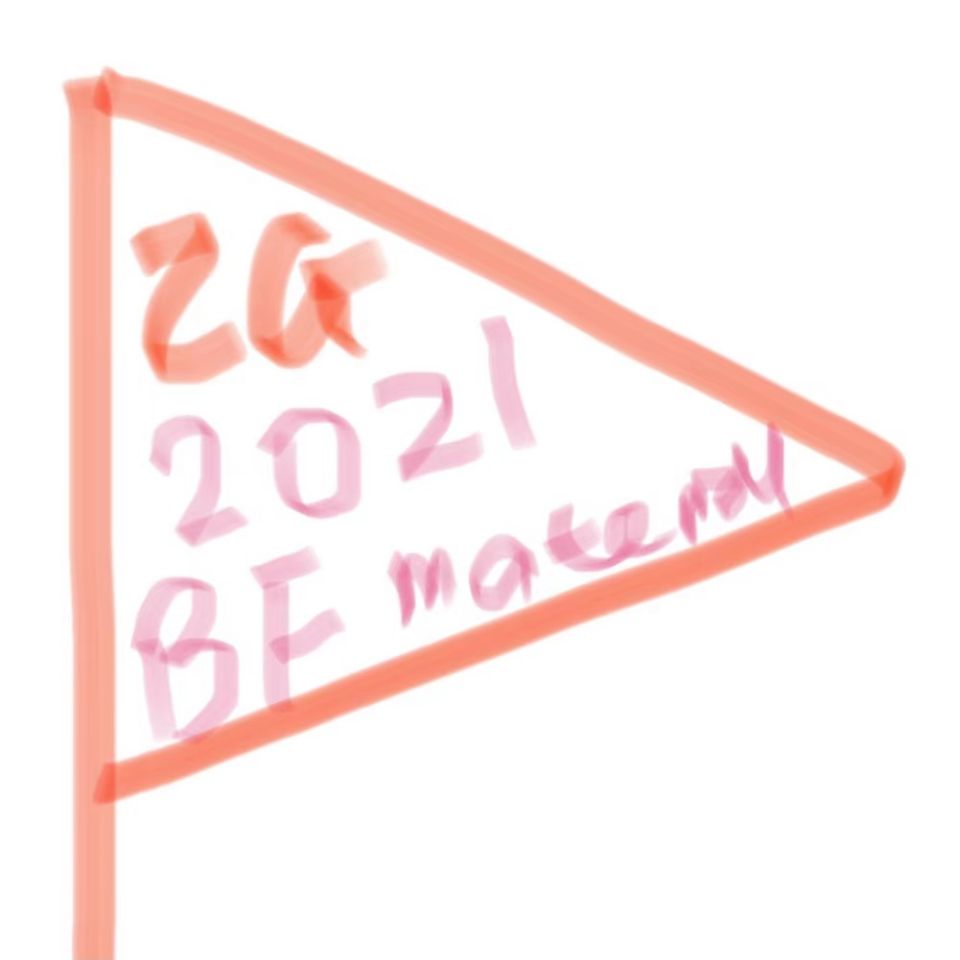 ZG
2021
BF material